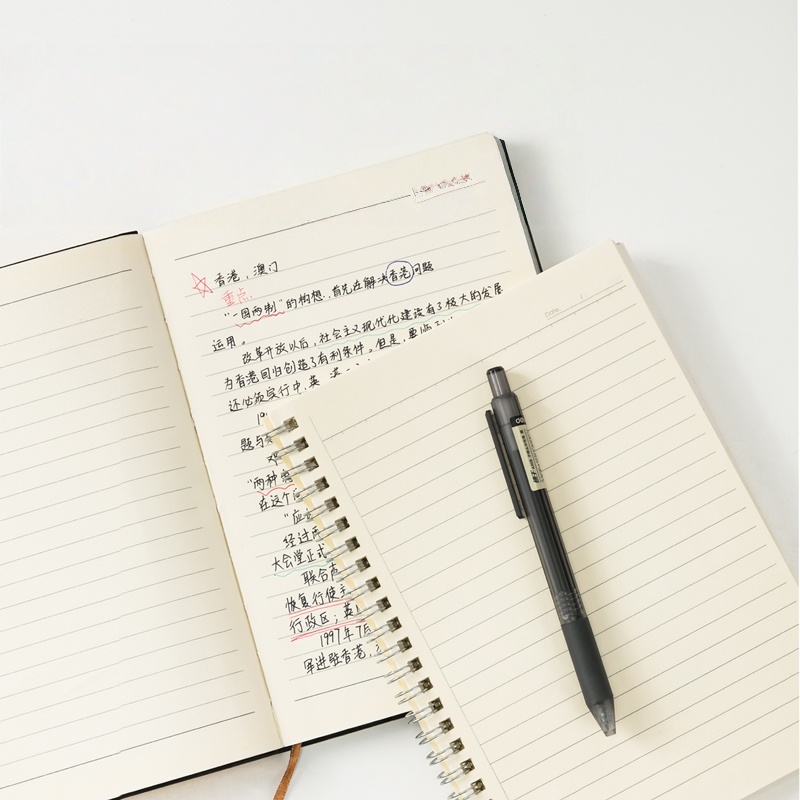 香港，澳门
重点
“一国两制”的构想，首先在解决香港问题
运用。
改革开放以后，社会主义现代化建设有了极大的发展
为香港回归创造了有利条件。但是，要
还必须实行中，英
19
题与
邓
“两种
在这个
“应
经过两
大会堂正式
联合声
恢复行使主
行政区；英
1997年7月
军进驻香港，
Date. /